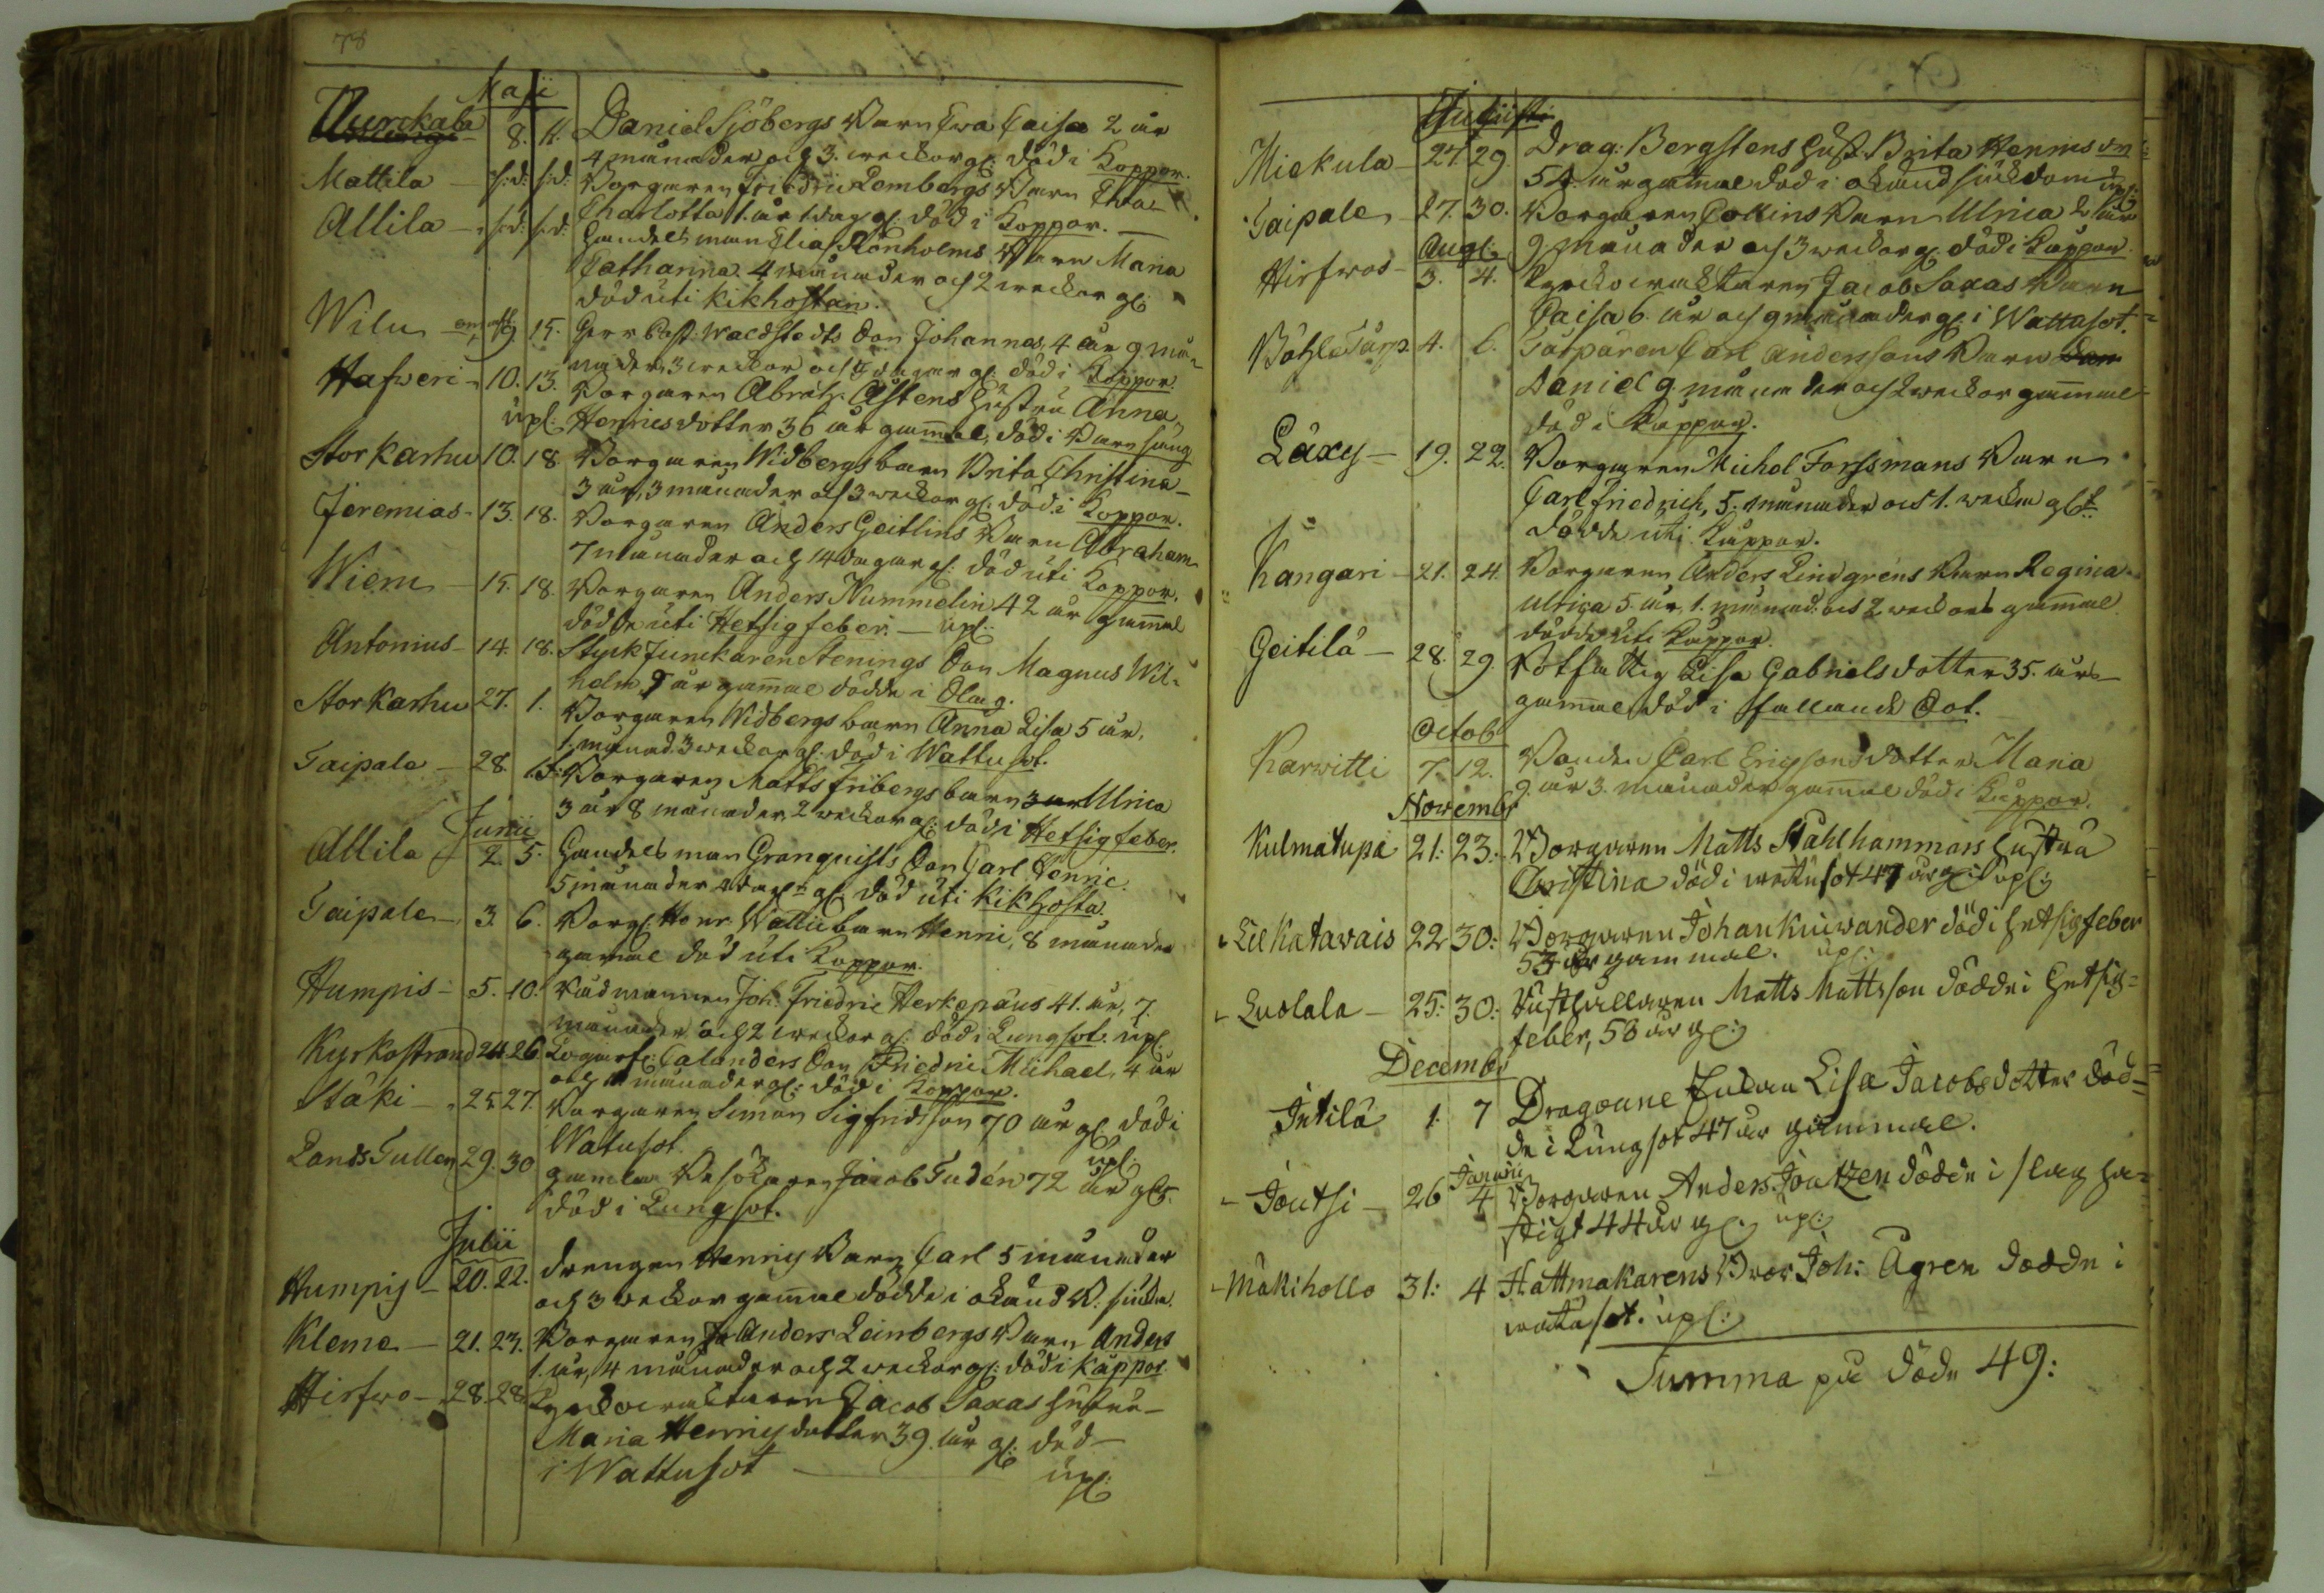 78
Maji
Nurckala 8. 11. Daniel Sjöbergs Barn Ewa Caisa 2 år
4 månader och 3. weckor gl: död i Koppor.
Mattila – s:d: s:d: Borgaren Friedric Lembergs Barn Ewa
Charlotta 1. år 1 dag gl: död i Koppor.
Allila – s:d: s:d: Handelsman Elias Rönholms Barn Maria
Catharina 4 månader och 2 weckor gl:
död uti Kikhostan.
Wilu 9. 15. Herr Capt: Waldstedts Son Johannes, 4 år 9 må=
nader 3 weckor och 4 dagar gl: död i Koppor.
Hafweri – 10. 13. Borgaren Abrah: Åstens Hustru Anna
upl: Henricsdotter 36 år gammal, död i Barnsäng
Storkarhu 10. 18. Borgaren Widbergs barn Brita Christina
3 år, 3 månader och 3 weckor gl: död i Koppor.
Jeremias – 13. 18. Borgaren Anders Geitlins Barn Abraham
7 månader och 14 dagar gl: död uti Koppor.
Wiem – 15. 18. Borgaren Anders Nummelin 42 år gammal
dödde uti Hetsig feber. – upl:
Antonius – 14. 18. Styckjunckaren Stenings Son Magnus Wil=
helm 9 år gammal dödde i Slag.
Storkarhu 27. 1. Borgaren Widbergs barn Anna Lisa 5 år,
1. månad. 3 weckor gl: död i Wattusot.
Taipale – 28. Borgaren Matts Fribergs barn Ulrica
3 år 8 månader 2 weckor gl: död i Hetsig feber.
Junii
Allila 2. 5. Handelsman Granquists Son Carl Henric
5 månader gl: död uti Kikhosta.
Taipale – 3. 6. Borg: Henr. Wallii barn Henric, 8 månader
gammal död uti Koppor.
Humpis – 5. 10. Rådmannen Joh: Friedric Herkepæus 41. år, 7.
månader och 2 weckor gl: död i Lungsot. upl:
Kyrkostrand 24. 26. Calanders Son Friedric Michael, 4 år
och månader gl: död i Koppor.
Stäki – 25. 27. Borgaren Simon Sigfridsson 70 år gl: död i
Watusot. upl:
LandsTullen 29. 30 gamla Besökaren Jacob Tudén 72 år gl:
död i Lungsot.
Julii
Humpis – 20. 22. drengen Henrics Barn Carl 5 månader
och 3 weckor gammal dödde i okänd B: siukd.
Kleme – 21. 23. Borgaren Anders Leinbergs Barn Anders
1. år, 4 månader och 2 weckor gl: död i Kåppor.
Hirfwo – 28. 28. Kyrckowäcktaren Jacob Saxas hustru
Maria Henricsdotter 39. år gl: död
i Wattusot upl:
Augusti
Miekula – 27. 29. Drag: Bergstens Hust: Brita Henricsdr
54. år gammal död i okänd siukdom upl:
Taipale – 27. 30. Borgaren Collins Barn Ulrica 2 år
9 månader och 3 weckor gl: död i Kåppor.
Aug:
Hirfwos – 3. 4. Kyrckowäcktaren Jacob Saxas Barn
Caisa 6. år och 9 månader gl: i Wattusot.
Böhle Tårp. 4. 6. Torparen Carl Anderssons Barn
Daniel 9. månader och 2 weckor gammal
död i Kåppor.
Läxy – 19. 22. Borgaren Michel Forssmans Barn
Carl Friedrich, 5. månader och 1. wecka gl:
dödde uti Kåppor.
Kangari – 21. 24. Borgaren Anders Lindgrens Barn Regina
Ulrica 5. år, 1. månad och 2 weckors gammal
dödde uti Kåppor.
Geitilä – 28. 29. Rotfattig Lisa Gabrielsdotter 35. år
gammal död i fallande Sot.
Octob
Karwitti 7. 12. Bonden Carl Ericssons dotter Maria
9. år 3. månader gammal död i Kåppor.
Novembr
Kulmatupa 21: 23: Borgaren Matts Stahlhammars hustru
Christina död i wattusot 47 år gl: upl:
LilKatawais 22 30: Borgaren Johan Kiuwander död i hetsig feber
53 år gammal. upl:
Luolala – 25: 30: Rusthållaren Matts Mattsson dödde i hetsig=
feber, 58 år gl:
Decembr
Intilä 1. 7 Dragoune Enkan Lisa Jacobsdotter död=
de i Lungsot 47 år gammal.
Januarii
Joutsi – 26 4 Borgaren Anders Joutzen dödde i slag ha=
stigt 44 år gl: upl:
Mäkihollo 31: 4 Hattmakarens Bror Joh: Ågren dödde i
watusot. upl:
Summa på döde 49: